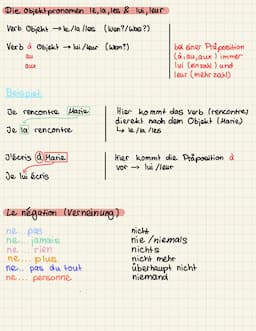 Die Objektpronomen le, la, les & lui, leur
Verb Objekt → le/la/les (Wen?/Was?)
Verb à Objekt → lui/leur (Wem?)
au
aux
bei einer Präposition
(à, au, aux) immer
lui (einzahl) und
leur (mehrzahl)
Beispiel:
Je rencontre Marie
Je la rencontre
Hier kommt das Verb (rencontre)
dierekt nach dem Objekt (Marie)
↳ le/la/les
J'écris à Marie
Je lui écris
Hier kommt die Präposition à
vor → lui/leur
Le négation (Verneinung)
ne... pas nicht
ne... jamais nie/niemals
ne... rien nichts
ne... plus nicht mehr
ne... pas du tout überhaupt nicht
ne... personne niemand